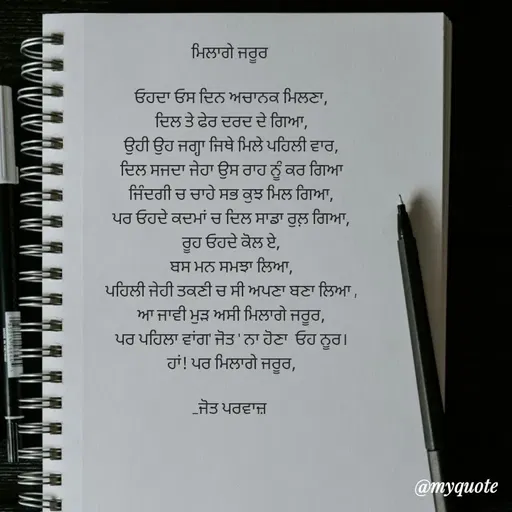 ਮਿਲਾਗੇ ਜਰੂਰ
ਓਹਦਾ ਓਸ ਦਿਨ ਅਚਾਨਕ ਮਿਲਣਾ,
ਦਿਲ ਤੇ ਫੇਰ ਦਰਦ ਦੇ ਗਿਆ,
ਉਹੀ ਉਹ ਜਗ੍ਹਾ ਜਿਥੇ ਮਿਲੇ ਪਹਿਲੀ ਵਾਰ,
ਦਿਲ ਸਜਦਾ ਜੇਹਾ ਉਸ ਰਾਹ ਨੂੰ ਕਰ ਗਿਆ
ਜਿੰਦਗੀ ਚ ਚਾਹੇ ਸਭ ਕੁਝ ਮਿਲ ਗਿਆ,
ਪਰ ਓਹਦੇ ਕਦਮਾਂ ਚ ਦਿਲ ਸਾਡਾ ਰੁਲ਼ ਗਿਆ,
ਰੂਹ ਓਹਦੇ ਕੋਲ ਏ,
ਬਸ ਮਨ ਸਮਝਾ ਲਿਆ,
ਪਹਿਲੀ ਜੇਹੀ ਤਕਣੀ ਚ ਸੀ ਅਪਣਾ ਬਣਾ ਲਿਆ ,
ਆ ਜਾਵੀ ਮੁੜ ਅਸੀ ਮਿਲਾਗੇ ਜਰੂਰ,
ਪਰ ਪਹਿਲਾ ਵਾਂਗ' ਜੋਤ ' ਨਾ ਹੋਣਾ ਓਹ ਨੂਰ।
ਹਾਂ! ਪਰ ਮਿਲਾਗੇ ਜਰੂਰ,
_ਜੋਤ ਪਰਵਾਜ਼
@myquote